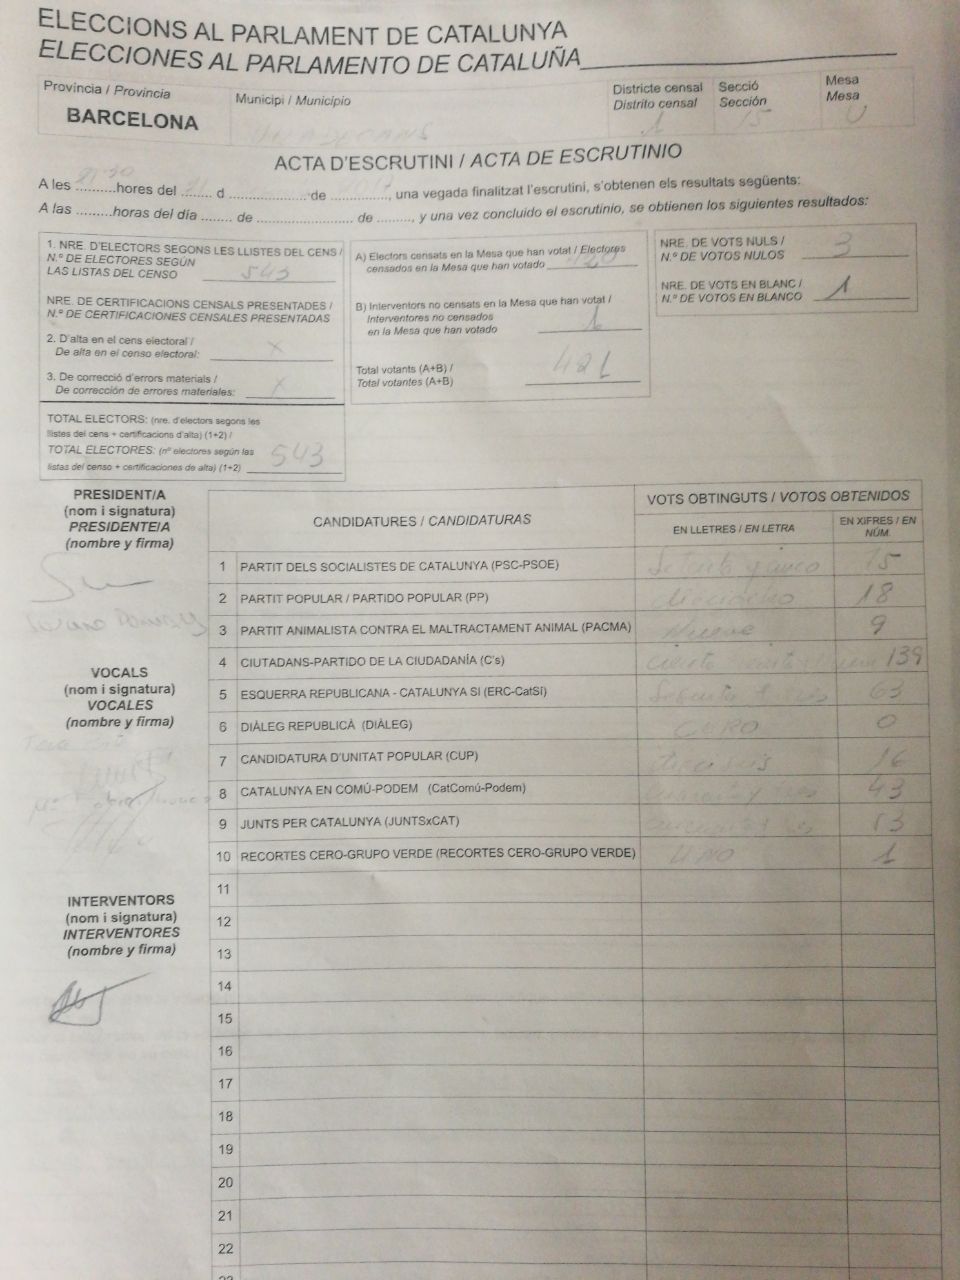 ELECCIONS AL PARLAMENT DE CATALUNYA
ELECCIONES AL PARLAMENTO DE CATALUÑA
Provincia / Provincia
BARCELONA
Municipi / Municipio
Districte censal
Distrito censal
1
Secció
Sección
15
Mesa
Mesa
U
ACTA D'ESCRUTINI / ACTA DE ESCRUTINIO
A les ......... hores del ........ d ..................... de ..............., una vegada finalitzat l'escrutini, s'obtenen els resultats següents:
A las ......... horas del día ........ de ........................ de ........., y una vez concluido el escrutinio, se obtienen los siguientes resultados:
1. NRE. D'ELECTORS SEGONS LES LLISTES DEL CENS /
N.º DE ELECTORES SEGÚN
LAS LISTAS DEL CENSO 543
NRE. DE CERTIFICACIONS CENSALS PRESENTADES /
N.º DE CERTIFICACIONES CENSALES PRESENTADAS
2. D'alta en el cens electoral /
De alta en el censo electoral: X
3. De correcció d'errors materials /
De corrección de errores materiales: X
TOTAL ELECTORS: (nre. d'electors segons les
llistes del cens + certificacions d'alta) (1+2) /
TOTAL ELECTORES: (nº electores según las
listas del censo + certificaciones de alta) (1+2) 543
A) Electors censats en la Mesa que han votat / Electores
censados en la Mesa que han votado 420
B) Interventors no censats en la Mesa que han votat /
Interventores no censados
en la Mesa que han votado 1
Total votants (A+B) /
Total votantes (A+B) 421
NRE. DE VOTS NULS /
N.º DE VOTOS NULOS 3
NRE. DE VOTS EN BLANC /
N.º DE VOTOS EN BLANCO 1
PRESIDENT/A
(nom i signatura)
PRESIDENTE/A
(nombre y firma)
VOCALS
(nom i signatura)
VOCALES
(nombre y firma)
INTERVENTORS
(nom i signatura)
INTERVENTORES
(nombre y firma)
CANDIDATURES / CANDIDATURAS
VOTS OBTINGUTS / VOTOS OBTENIDOS
EN LLETRES / EN LETRA
EN XIFRES / EN NÚM.
1 PARTIT DELS SOCIALISTES DE CATALUNYA (PSC-PSOE) Setenta y cinco 75
2 PARTIT POPULAR / PARTIDO POPULAR (PP) dieciocho 18
3 PARTIT ANIMALISTA CONTRA EL MALTRACTAMENT ANIMAL (PACMA) Nueve 9
4 CIUTADANS-PARTIDO DE LA CIUDADANÍA (C's) ciento 139
5 ESQUERRA REPUBLICANA - CATALUNYA SÍ (ERC-CatSí) Sesenta y tres 63
6 DIÀLEG REPUBLICÀ (DIÀLEG) CERO 0
7 CANDIDATURA D'UNITAT POPULAR (CUP) 16
8 CATALUNYA EN COMÚ-PODEM (CatComú-Podem) 43
9 JUNTS PER CATALUNYA (JUNTSxCAT) 53
10 RECORTES CERO-GRUPO VERDE (RECORTES CERO-GRUPO VERDE) UNO 1
11
12
13
14
15
16
17
18
19
20
21
22
23